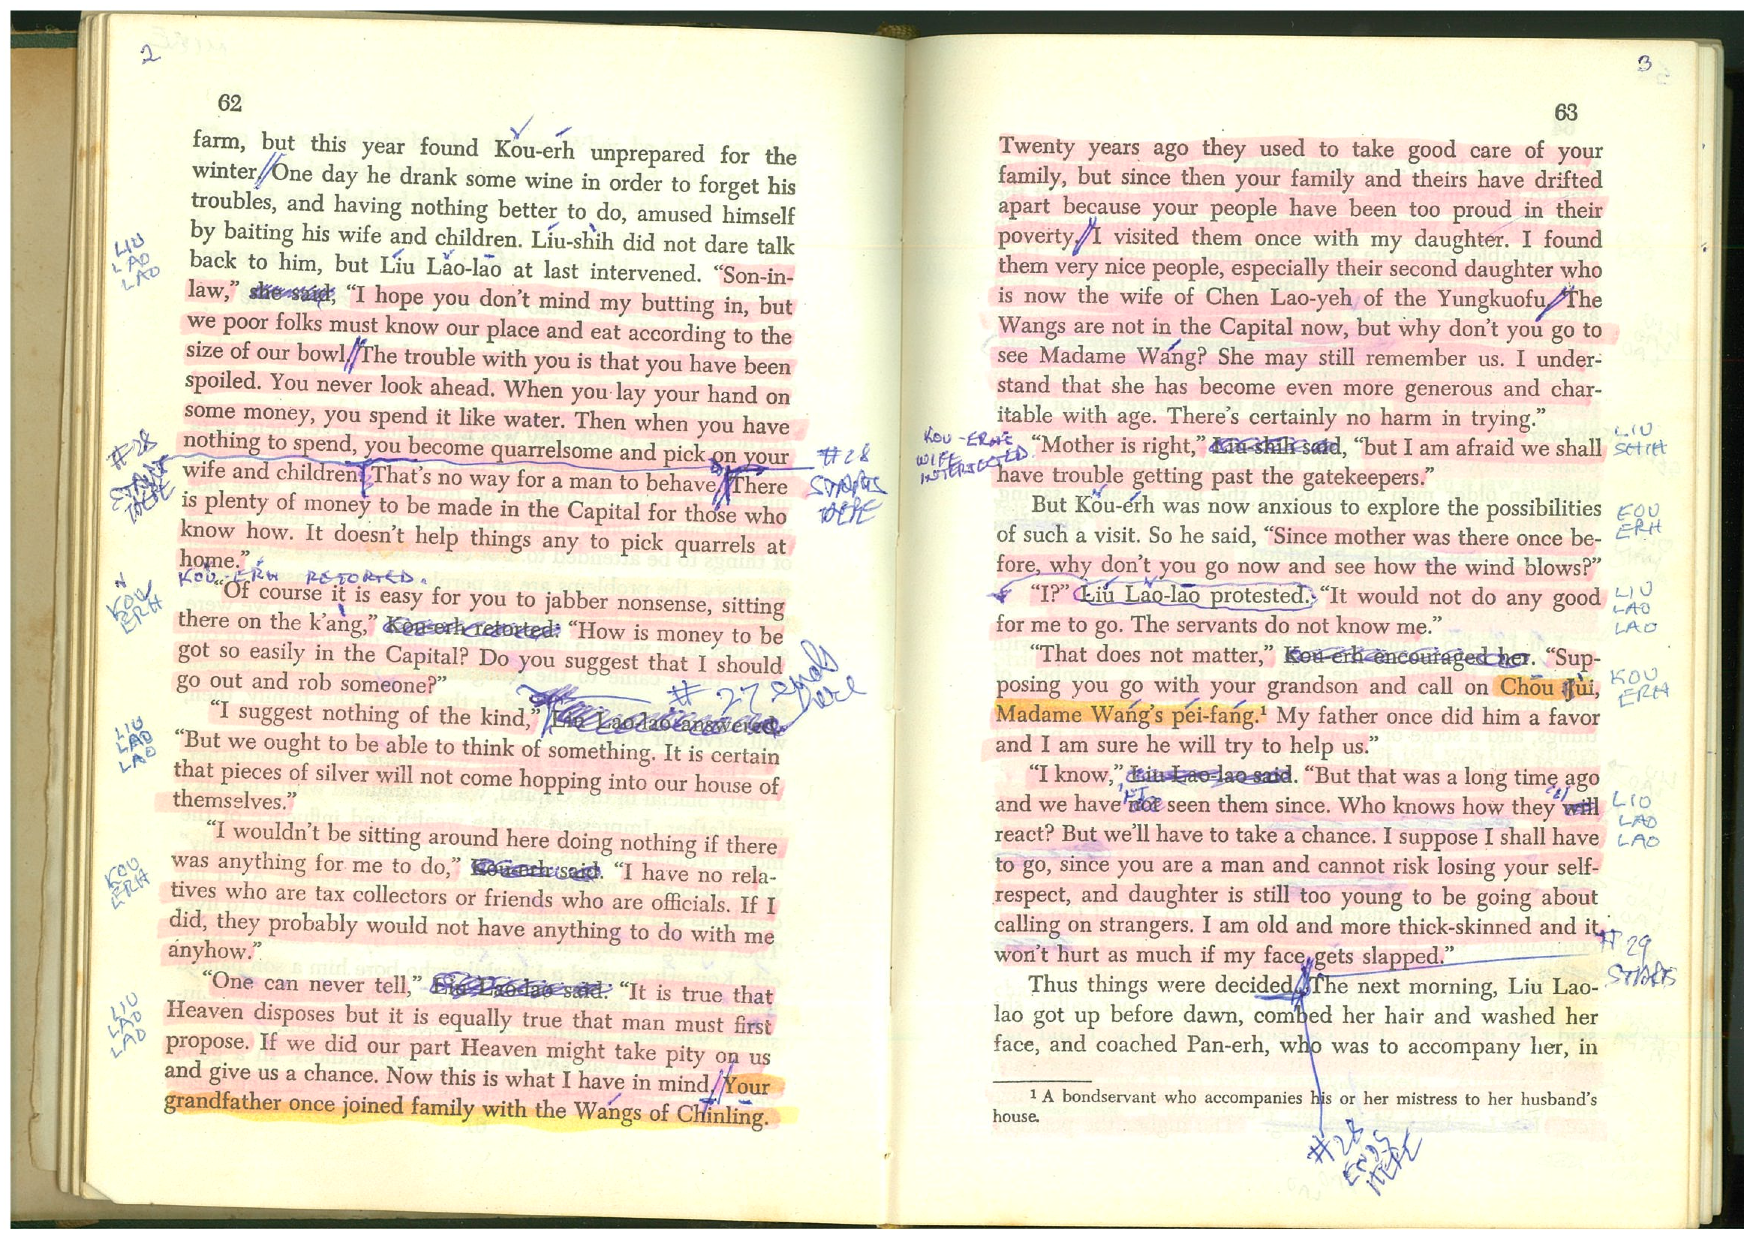 2
62
farm, but this year found Kou-erh unprepared for the
winter. One day he drank some wine in order to forget his
troubles, and having nothing better to do, amused himself
by baiting his wife and children. Liu-shih did not dare talk
back to him, but Liu Lao-lao at last intervened. “Son-in-
law,” she said, “I hope you don’t mind my butting in, but
we poor folks must know our place and eat according to the
size of our bowl. The trouble with you is that you have been
spoiled. You never look ahead. When you lay your hand on
some money, you spend it like water. Then when you have
nothing to spend, you become quarrelsome and pick on your
wife and children. That’s no way for a man to behave. There
is plenty of money to be made in the Capital for those who
know how. It doesn’t help things any to pick quarrels at
home.”
KOU-ERH RETORTED.
“Of course it is easy for you to jabber nonsense, sitting
there on the k’ang,” Kou-erh retorted. “How is money to be
got so easily in the Capital? Do you suggest that I should
go out and rob someone?”
“I suggest nothing of the kind,” Liu Lao-lao answered.
“But we ought to be able to think of something. It is certain
that pieces of silver will not come hopping into our house of
themselves.”
“I wouldn’t be sitting around here doing nothing if there
was anything for me to do,” Kou-erh said. “I have no rela-
tives who are tax collectors or friends who are officials. If I
did, they probably would not have anything to do with me
anyhow.”
“One can never tell,” Liu Lao-lao said. “It is true that
Heaven disposes but it is equally true that man must first
propose. If we did our part Heaven might take pity on us
and give us a chance. Now this is what I have in mind. Your
grandfather once joined family with the Wangs of Chinling.
LIU
LAO
LAO
#28
START
HERE
#28
STARTS
HERE
KOU
ERH
#27 ends
here
LIU
LAO
LAO
KOU
ERH
LIU
LAO
LAO
3
63
Twenty years ago they used to take good care of your
family, but since then your family and theirs have drifted
apart because your people have been too proud in their
poverty. I visited them once with my daughter. I found
them very nice people, especially their second daughter who
is now the wife of Chen Lao-yeh of the Yungkuofu. The
Wangs are not in the Capital now, but why don’t you go to
see Madame Wang? She may still remember us. I under-
stand that she has become even more generous and char-
itable with age. There’s certainly no harm in trying.”
“Mother is right,” Liu-shih said, “but I am afraid we shall
have trouble getting past the gatekeepers.”
But Kou-erh was now anxious to explore the possibilities
of such a visit. So he said, “Since mother was there once be-
fore, why don’t you go now and see how the wind blows?”
“I?” Liu Lao-lao protested. “It would not do any good
for me to go. The servants do not know me.”
“That does not matter,” Kou-erh encouraged her. “Sup-
posing you go with your grandson and call on Chou Jui,
Madame Wang’s pei-fang.¹ My father once did him a favor
and I am sure he will try to help us.”
“I know,” Liu Lao-lao said. “But that was a long time ago
and we have not seen them since. Who knows how they will
react? But we’ll have to take a chance. I suppose I shall have
to go, since you are a man and cannot risk losing your self-
respect, and daughter is still too young to be going about
calling on strangers. I am old and more thick-skinned and it
won’t hurt as much if my face gets slapped.”
Thus things were decided. The next morning, Liu Lao-
lao got up before dawn, combed her hair and washed her
face, and coached Pan-erh, who was to accompany her, in
¹ A bondservant who accompanies his or her mistress to her husband’s
house.
KOU-ERH'S
WIFE
INTERJECTED
LIU
SHIH
KOU
ERH
LIU
LAO
LAO
KOU
ERH
LIU
LAO
LAO
#29
STARTS
#28
ENDS
HERE